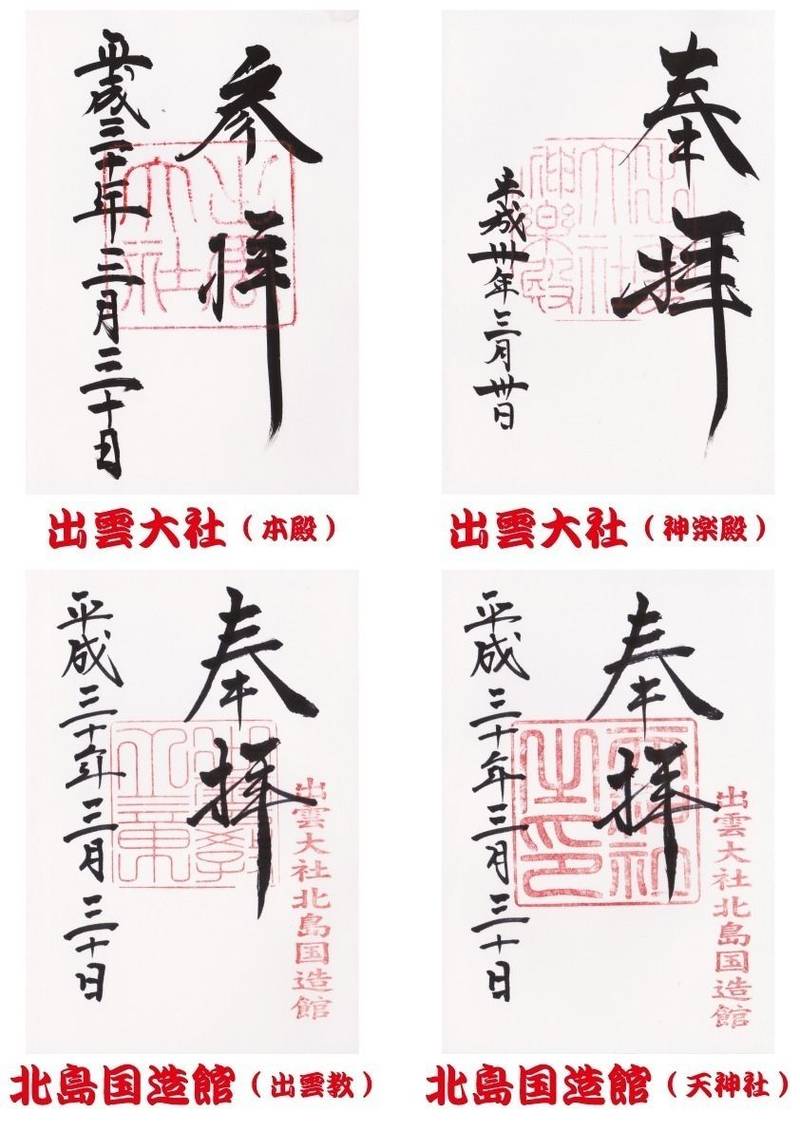 参拝
出雲
大社
平成三十年三月三十日
出雲大社（本殿）
奉拝
出雲
大社
神樂殿
平成卅年三月卅日
出雲大社（神楽殿）
奉拝
出雲大社北島国造館
平成三十年三月三十日
北島国造館（出雲教）
奉拝
出雲大社北島国造館
天神社
之印
平成三十年三月三十日
北島国造館（天神社）